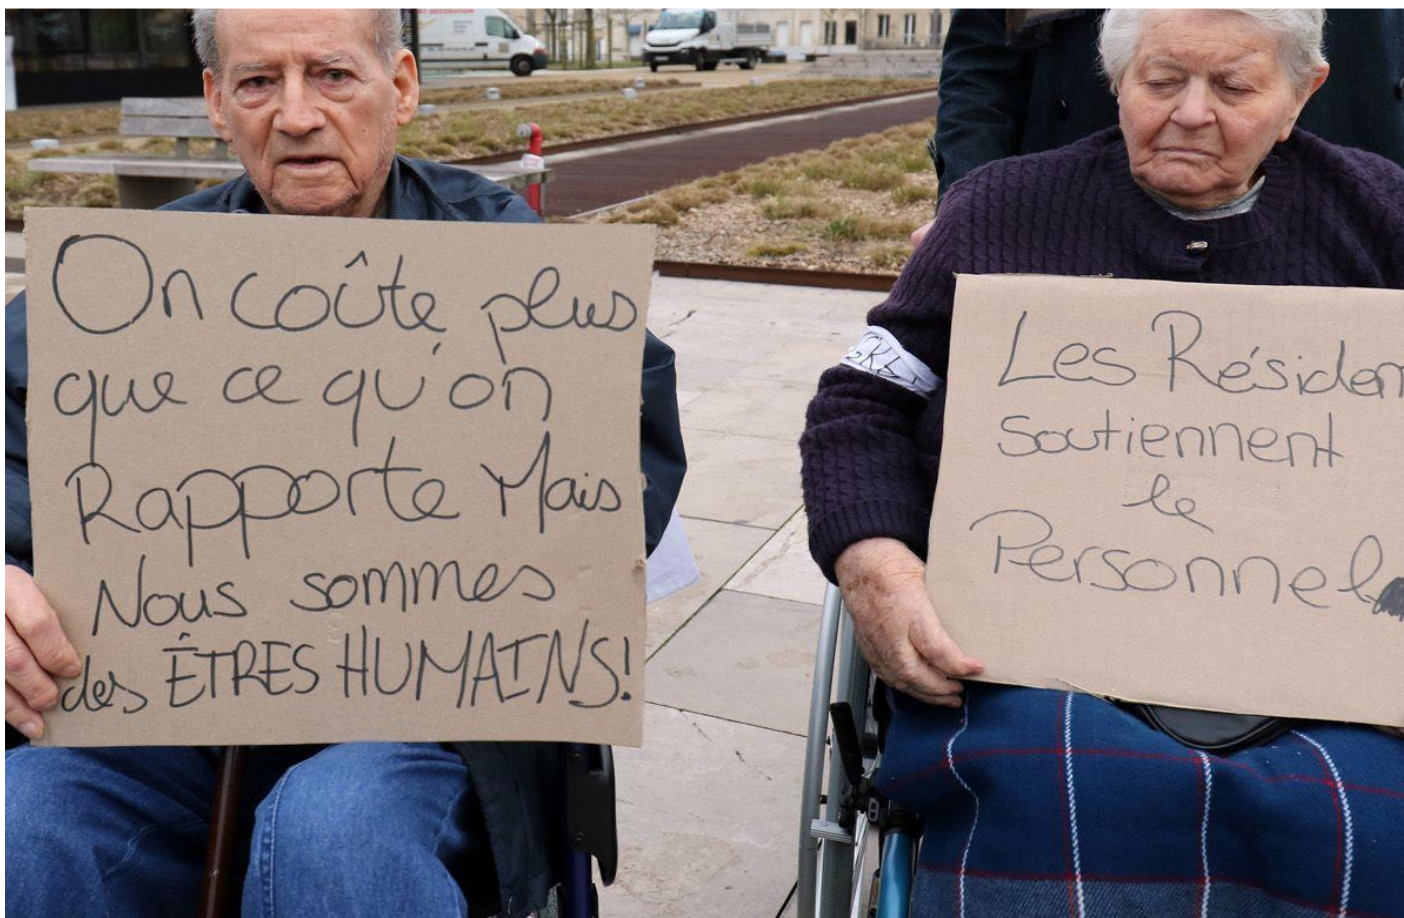 On coûte plus
que ce qu'on
Rapporte Mais
Nous sommes
des ÊTRES HUMAINS!
Les Résiden
soutiennent
le
Personnel